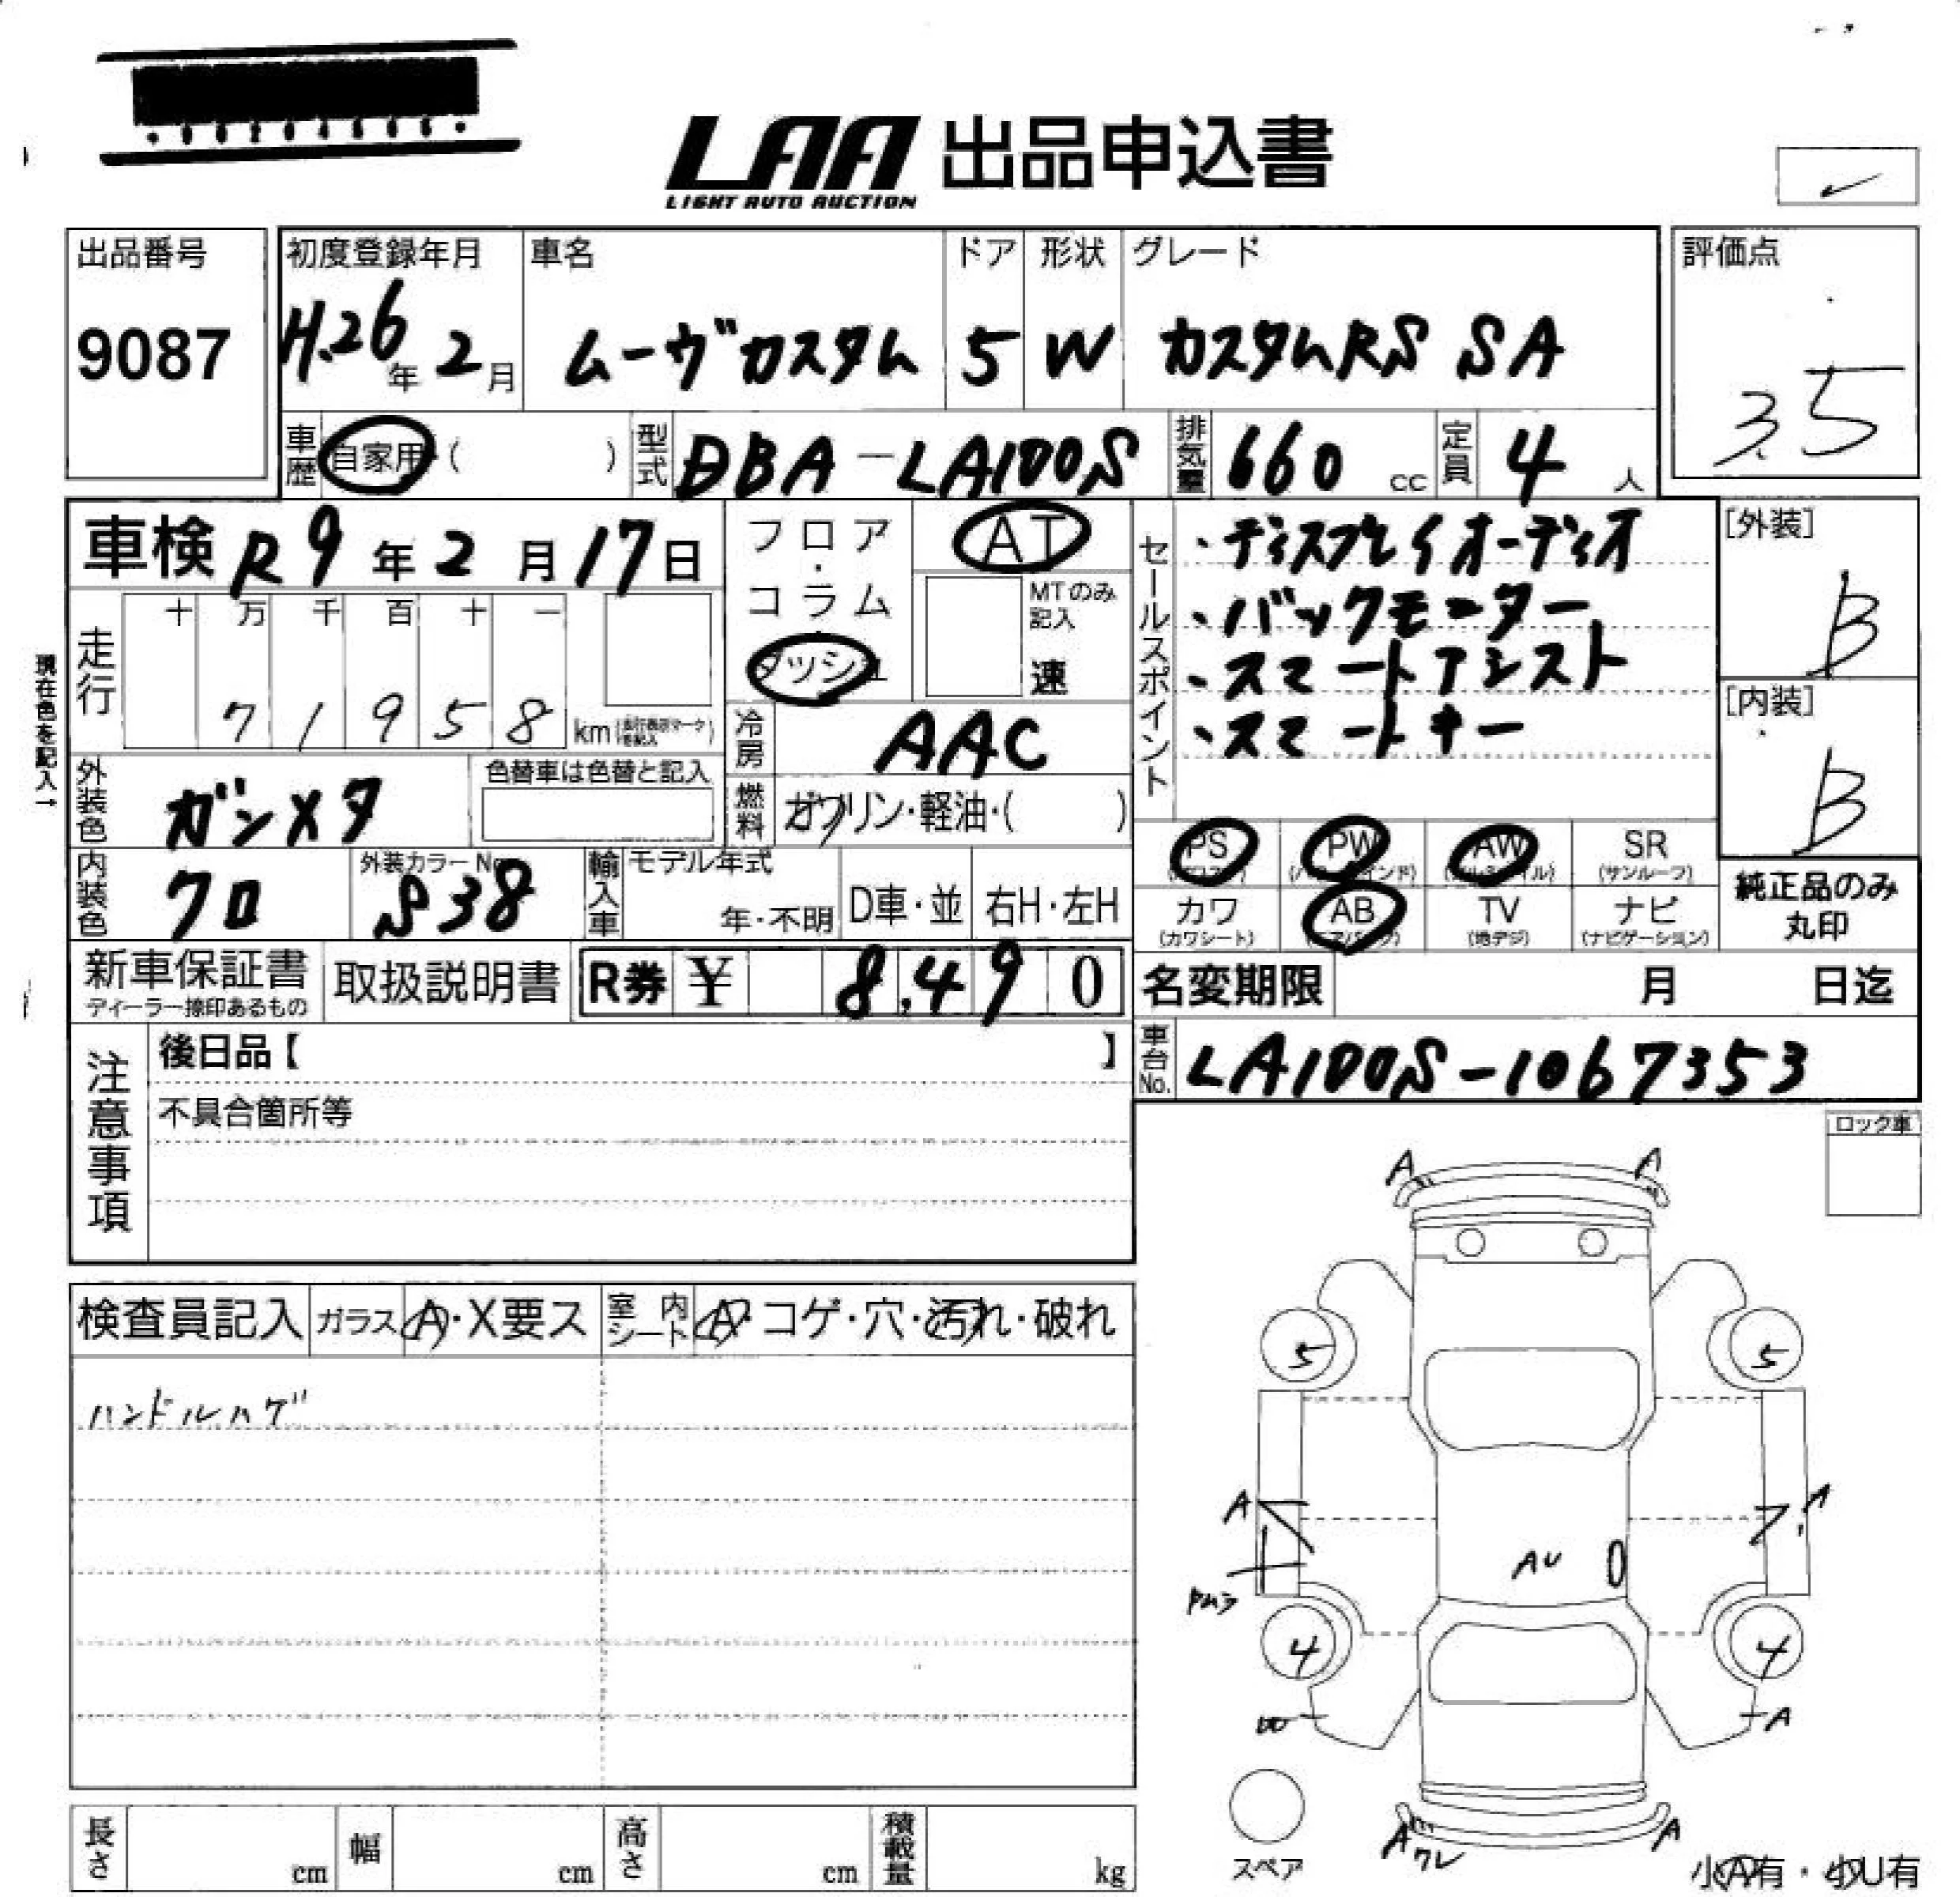 LAA 出品申込書
LIGHT AUTO AUCTION
出品番号
9087
初度登録年月
H.26年2月
車名
ムーヴカスタム
ドア
5
形状
W
グレード
カスタムRS SA
評価点
3.5
車歴 自家用・( )
型式 DBA-LA100S
排気量 660 cc
定員 4 人
車検 R9年2月17日
フロア・コラム・ダッシュ
AT
MTのみ記入
速
走行
十 万 千 百 十 一
7 1 9 5 8 km
現在色を記入→
冷房 AAC
外装色 ガンメタ
色替車は色替と記入
燃料 ガソリン・軽油・( )
内装色 クロ
外装カラーNo. S38
輸入車 モデル年式
年・不明
D車・並
右H・左H
セールスポイント
・ディスプレイオーディオ
・バックモニター
・スマートアシスト
・スマートキー
[外装]
B
[内装]
B
PS PW AW SR
(サンルーフ)
カワ AB TV ナビ
(カワシート) (地デジ) (ナビゲーション)
純正品のみ
丸印
新車保証書
ディーラー捺印あるもの
取扱説明書
R券 ¥ 8,490
名変期限 月 日迄
車台No. LA100S-1067353
注意事項
後日品【 】
不具合箇所等
ロック車
検査員記入
ガラス A・X要ス
室内シート A・コゲ・穴・汚れ・破れ
ハンドルハゲ
A A
5 5
A
AU
4 4
W A
A ワレ A
スペア
小A有・小U有
長さ cm
幅 cm
高さ cm
積載量 kg